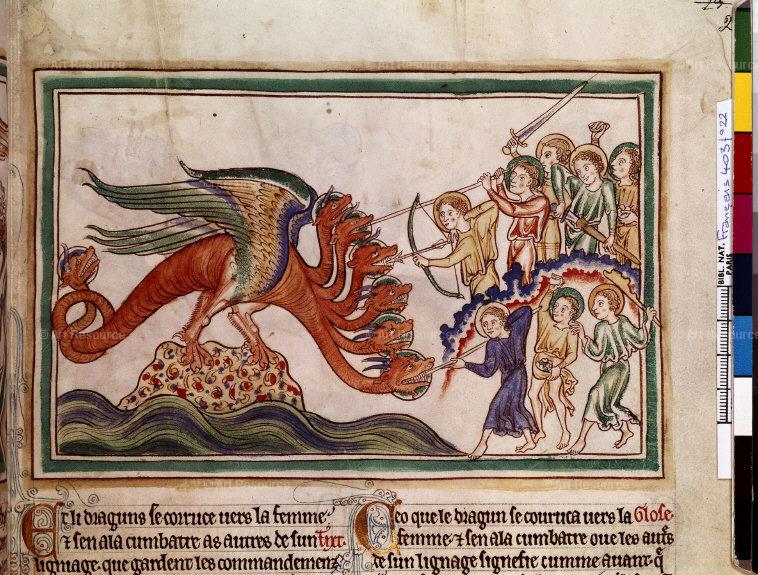 2
BIBL. NAT. Français 403 f° 22
PARIS
Et li draguns se corruce uers la femme.
⁊ sen ala cumbatre as autres de sun tixt.
lignage. que gardent les commandemenz
Ceo que le dragun se couruca uers la Glose.
femme. ⁊ sen ala cumbatre oue les autres
de sun lignage signefie cumme auant. q̄